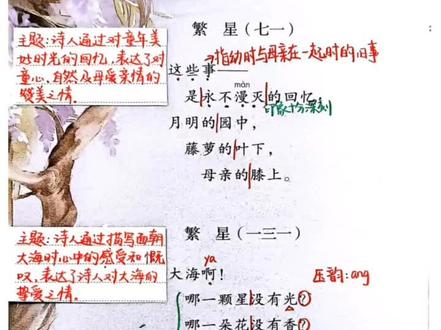 繁 星（七一）
主题：诗人通过对童年美
妙时光的回忆，表达了对
童心、自然及母爱亲情的
赞美之情。
指幼时与母亲在一起时的旧事
这些事——
màn
是永不漫灭的回忆，
印象十分深刻
月明的园中，
藤萝的叶下，
母亲的膝上。
繁 星（一三一）
主题：诗人通过描写面朝
大海时心中的感受和慨
叹，表达了诗人对大海的
挚爱之情。
ya
大海啊！
压韵：ang
哪一颗星没有光？
哪一朵花没有香？